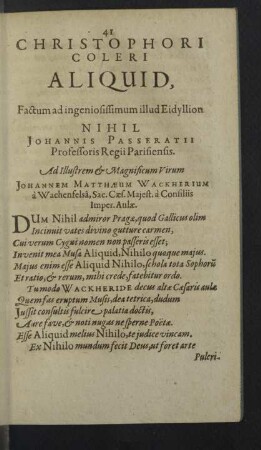 41
CHRISTOPHORI
COLERI
ALIQUID,
Factum ad ingeniosissimum illud Eidyllion
NIHIL
JOHANNIS PASSERATII
Professoris Regii Parisiensis.
Ad Illustrem & Magnificum Virum
JOHANNEM MATTHÆUM WACKHERIUM
à Wachenfelsâ, Sac. Cæs. Majest. à Consiliis
Imper. Aulæ.
DUM Nihil admiror Pragæ, quod Gallicus olim
Incinuit vates divino gutture carmen,
Cui verum Cygni nomen non passeris esset;
Invenit mea Musa Aliquid, Nihilo quoque majus.
Majus enim esse Aliquid Nihilo, schola tota Sophorū
Et ratio, & rerum, mihi crede, fatebitur ordo.
Tu modo WACKHERIDE decus altæ Cæsaris aulæ
Quem fas eruptum Musis, dea tetrica, dudum
Jussit consultis fulcire palatia doctis,
Aure fave, & noti nugas ne sperne Poëtæ.
Esse Aliquid melius Nihilo, te judice vincam.
Ex Nihilo mundum fecit Deus, ut foret arte
Pulcri-